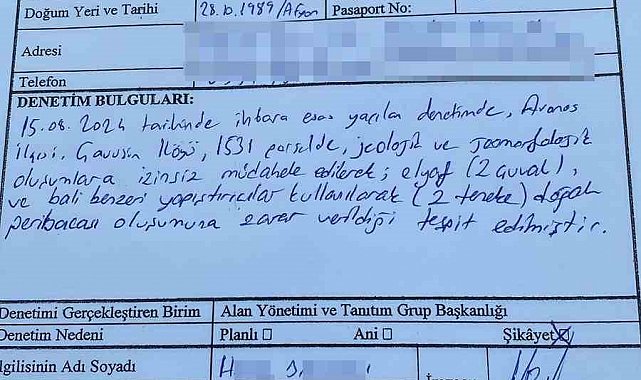 Doğum Yeri ve Tarihi 28.10.1989/Afyon Pasaport No:
Adresi
Telefon
DENETİM BULGULARI:
15.08.2024 tarihinde ihbara esas yapılan denetimde, Avanos
ilçesi, Çavuşin Köyü, 1531 parselde, jeolojik ve jeomorfolojik
oluşumlara izinsiz müdahele edilerek; elyaf (2 çuval),
ve bali benzeri yapıştırıcılar kullanılarak (2 teneke) doğal
peribacası oluşumuna zarar verildiği tespit edilmiştir.
Denetimi Gerçekleştiren Birim Alan Yönetimi ve Tanıtım Grup Başkanlığı
Denetim Nedeni Planlı ☐ Ani ☐ Şikâyet ☒
lgilisinin Adı Soyadı H